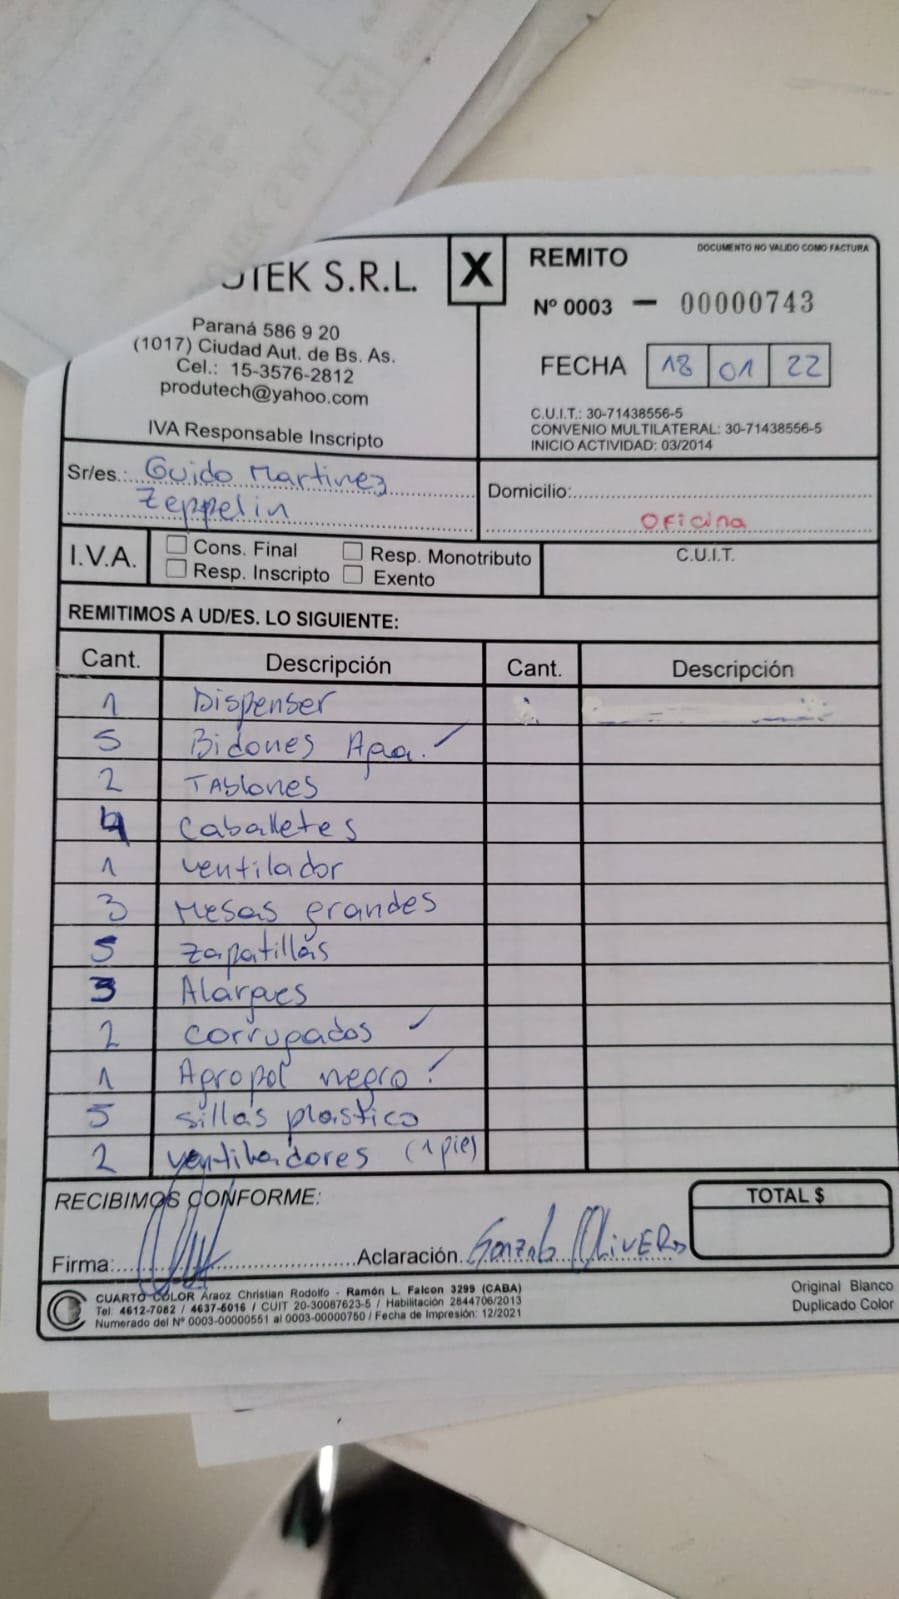 UTEK S.R.L.
Paraná 586 9 20
(1017) Ciudad Aut. de Bs. As.
Cel.: 15-3576-2812
produtech@yahoo.com
IVA Responsable Inscripto
X
REMITO
DOCUMENTO NO VALIDO COMO FACTURA
Nº 0003 — 00000743
FECHA 18 01 22
C.U.I.T.: 30-71438556-5
CONVENIO MULTILATERAL: 30-71438556-5
INICIO ACTIVIDAD: 03/2014
Sr/es.: Guido Martinez
Zeppelin
Domicilio:
Oficina
I.V.A.
Cons. Final
Resp. Monotributo
Resp. Inscripto
Exento
C.U.I.T.
REMITIMOS A UD/ES. LO SIGUIENTE:
Cant. Descripción Cant. Descripción
1 Dispenser
5 Bidones Agua. ✓
2 Tablones
4 Caballetes
1 ventilador
3 Mesas grandes
5 Zapatillas
3 Alargues
2 corrugados ✓
1 Agropol negro ✓
5 sillas plastico
2 ventiladores (1 pie)
RECIBIMOS CONFORME:
TOTAL $
Firma: Aclaración Gonzalo Olivero
CUARTO COLOR Araoz Christian Rodolfo - Ramón L. Falcon 3299 (CABA)
Tel: 4612-7082 / 4637-6016 / CUIT 20-30087623-5 / Habilitación 2844706/2013
Numerado del Nº 0003-00000551 al 0003-00000750 / Fecha de Impresión: 12/2021
Original Blanco
Duplicado Color